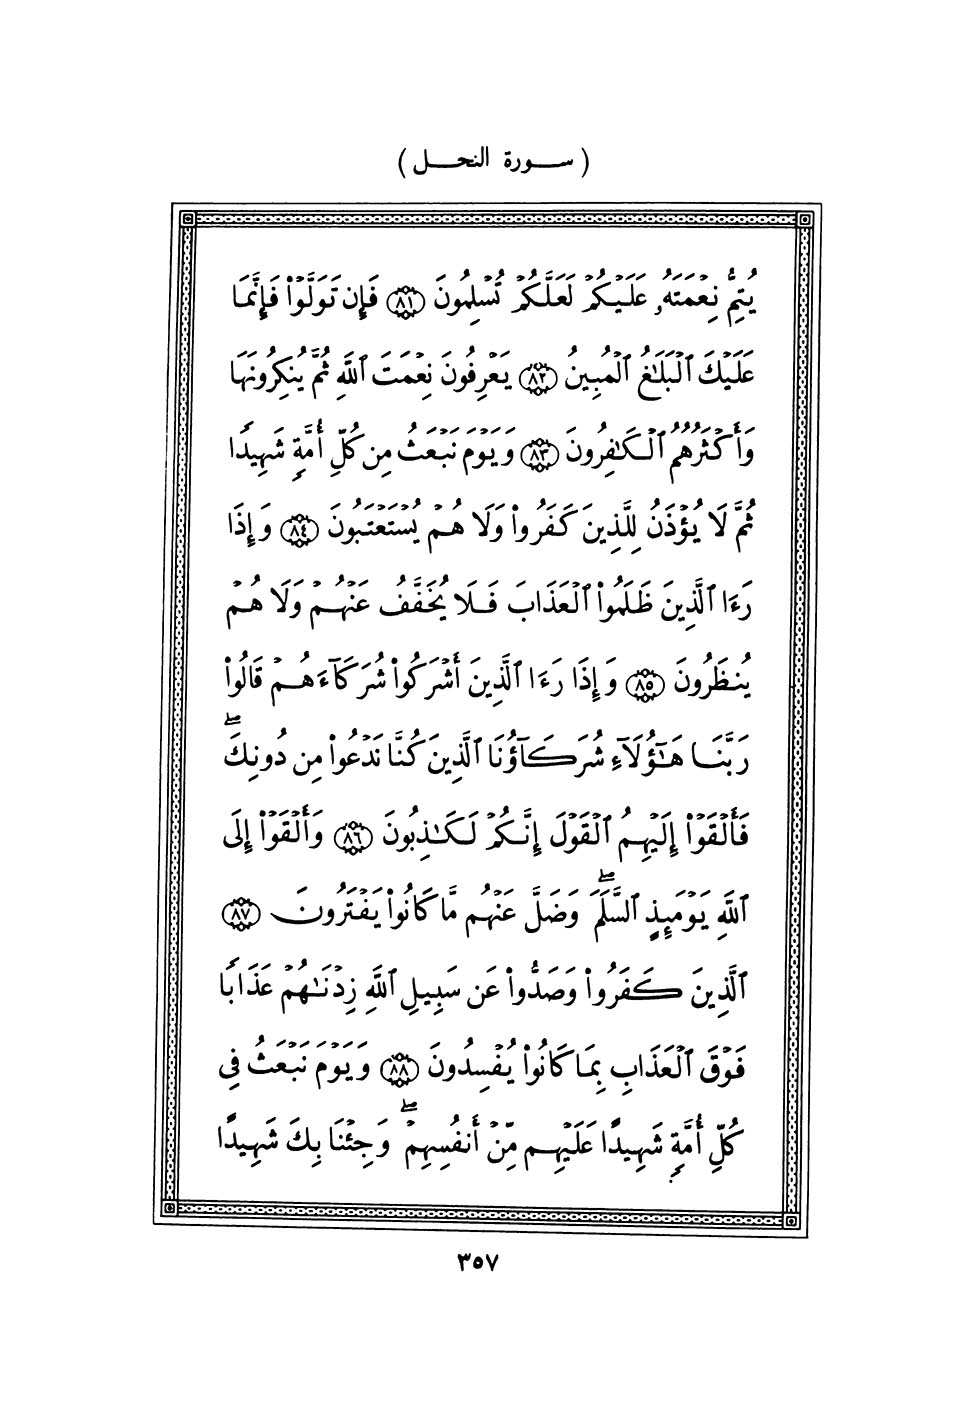 ( سورة النحل )
يُتِمُّ نِعْمَتَهُۥ عَلَيْكُمْ لَعَلَّكُمْ تُسْلِمُونَ ٨١ فَإِن تَوَلَّوْا۟ فَإِنَّمَا
عَلَيْكَ ٱلْبَلَٰغُ ٱلْمُبِينُ ٨٢ يَعْرِفُونَ نِعْمَتَ ٱللَّهِ ثُمَّ يُنكِرُونَهَا
وَأَكْثَرُهُمُ ٱلْكَٰفِرُونَ ٨٣ وَيَوْمَ نَبْعَثُ مِن كُلِّ أُمَّةٍ شَهِيدًا
ثُمَّ لَا يُؤْذَنُ لِلَّذِينَ كَفَرُوا۟ وَلَا هُمْ يُسْتَعْتَبُونَ ٨٤ وَإِذَا
رَءَا ٱلَّذِينَ ظَلَمُوا۟ ٱلْعَذَابَ فَلَا يُخَفَّفُ عَنْهُمْ وَلَا هُمْ
يُنظَرُونَ ٨٥ وَإِذَا رَءَا ٱلَّذِينَ أَشْرَكُوا۟ شُرَكَآءَهُمْ قَالُوا۟
رَبَّنَا هَٰٓؤُلَآءِ شُرَكَآؤُنَا ٱلَّذِينَ كُنَّا نَدْعُوا۟ مِن دُونِكَ ۖ
فَأَلْقَوْا۟ إِلَيْهِمُ ٱلْقَوْلَ إِنَّكُمْ لَكَٰذِبُونَ ٨٦ وَأَلْقَوْا۟ إِلَى
ٱللَّهِ يَوْمَئِذٍ ٱلسَّلَمَ ۖ وَضَلَّ عَنْهُم مَّا كَانُوا۟ يَفْتَرُونَ ٨٧
ٱلَّذِينَ كَفَرُوا۟ وَصَدُّوا۟ عَن سَبِيلِ ٱللَّهِ زِدْنَٰهُمْ عَذَابًا
فَوْقَ ٱلْعَذَابِ بِمَا كَانُوا۟ يُفْسِدُونَ ٨٨ وَيَوْمَ نَبْعَثُ فِى
كُلِّ أُمَّةٍ شَهِيدًا عَلَيْهِم مِّنْ أَنفُسِهِمْ ۖ وَجِئْنَا بِكَ شَهِيدًا
٣٥٧